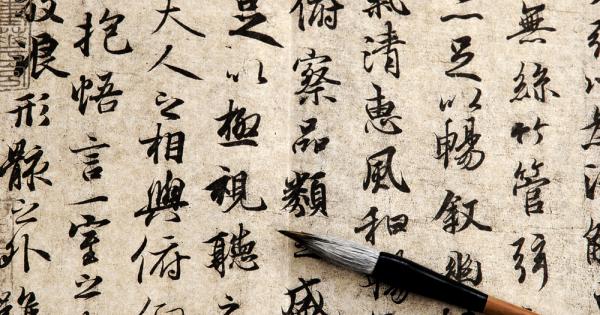 無絲竹管弦
亦足以暢叙幽
氣清惠風和暢
俯察品類之盛
足以極視聽之
夫人之相與俯仰
抱悟言一室之
放浪形骸之外雖